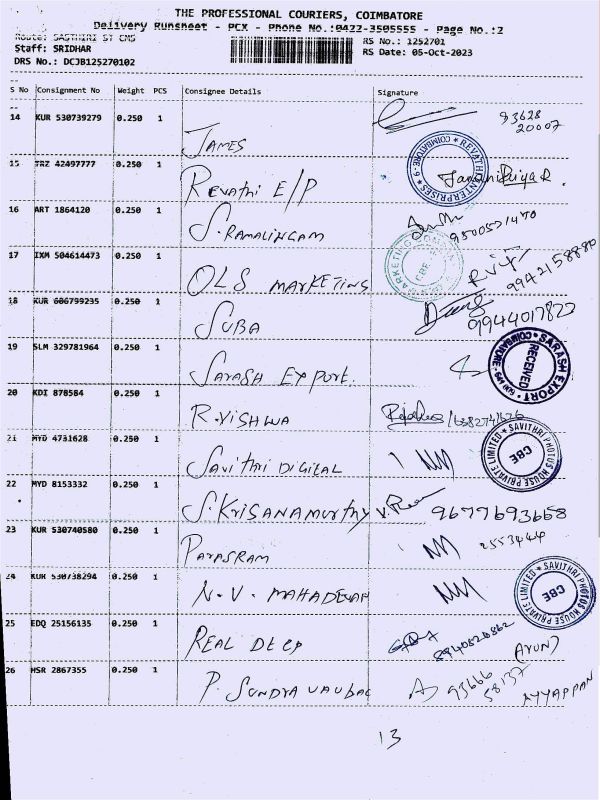 THE PROFESSIONAL COURIERS, COIMBATORE
Delivery Runsheet - PCX - Phone No.:0422-3505555 - Page No.:2
Route: SASTHIRI ST CMS
RS No.: 1252701
Staff: SRIDHAR
RS Date: 05-Oct-2023
DRS No.: DCJB125270102
S No Consignment No Weight PCS Consignee Details Signature
14 KUR 530739279 0.250 1 JAMES 93628
20007
15 TRZ 42497777 0.250 1 Revathi E/P REVATHI ENTERPRISES * COIMBATORE-9
16 ART 1864120 0.250 1 S. RAMALINGAM 9500571470
17 IXM 504614473 0.250 1 OLS MARKETING MARKETING CBE 9942158880
18 KUR 606799235 0.250 1 SUBA 9944017822
19 SLM 329781964 0.250 1 SARASH EXPORT. SARASH EXPORT RECEIVED COIMBATORE
20 KDI 878584 0.250 1 R.VISHWA
21 MYD 4731628 0.250 1 SAVITHRI DIGITAL SAVITHRI PHOTOS HOUSE PRIVATE LIMITED CBE
22 MYD 8153332 0.250 1 S. KRISANAMURTHY 9677693668
23 KUR 530740580 0.250 1 PARASRAM 2553444
24 KUR 530738294 0.250 1 N.V. MAHADEVAN SAVITHRI PHOTOS HOUSE PRIVATE LIMITED CBE
25 EDQ 25156135 0.250 1 REAL DEEP 8940520862
(ARUN)
26 HSR 2867355 0.250 1 P. 93666
58137
AYYAPPAN
13